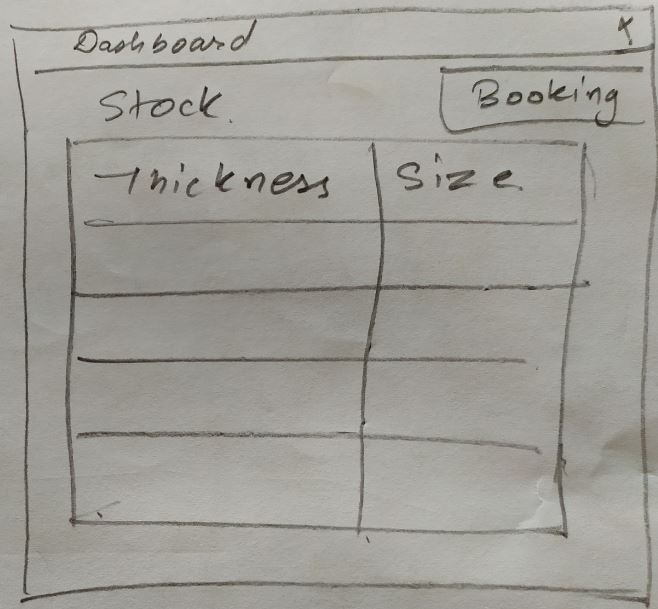 Dashboard x
Stock. Booking
Thickness Size